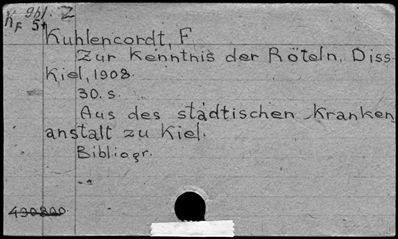 Kuhlencordt, F.
Zur Kenntnis der Röteln. Diss-
Kiel, 1908
30. s.
Aus des städtischen Kranken
anstalt zu Kiel.
Bibliogr.